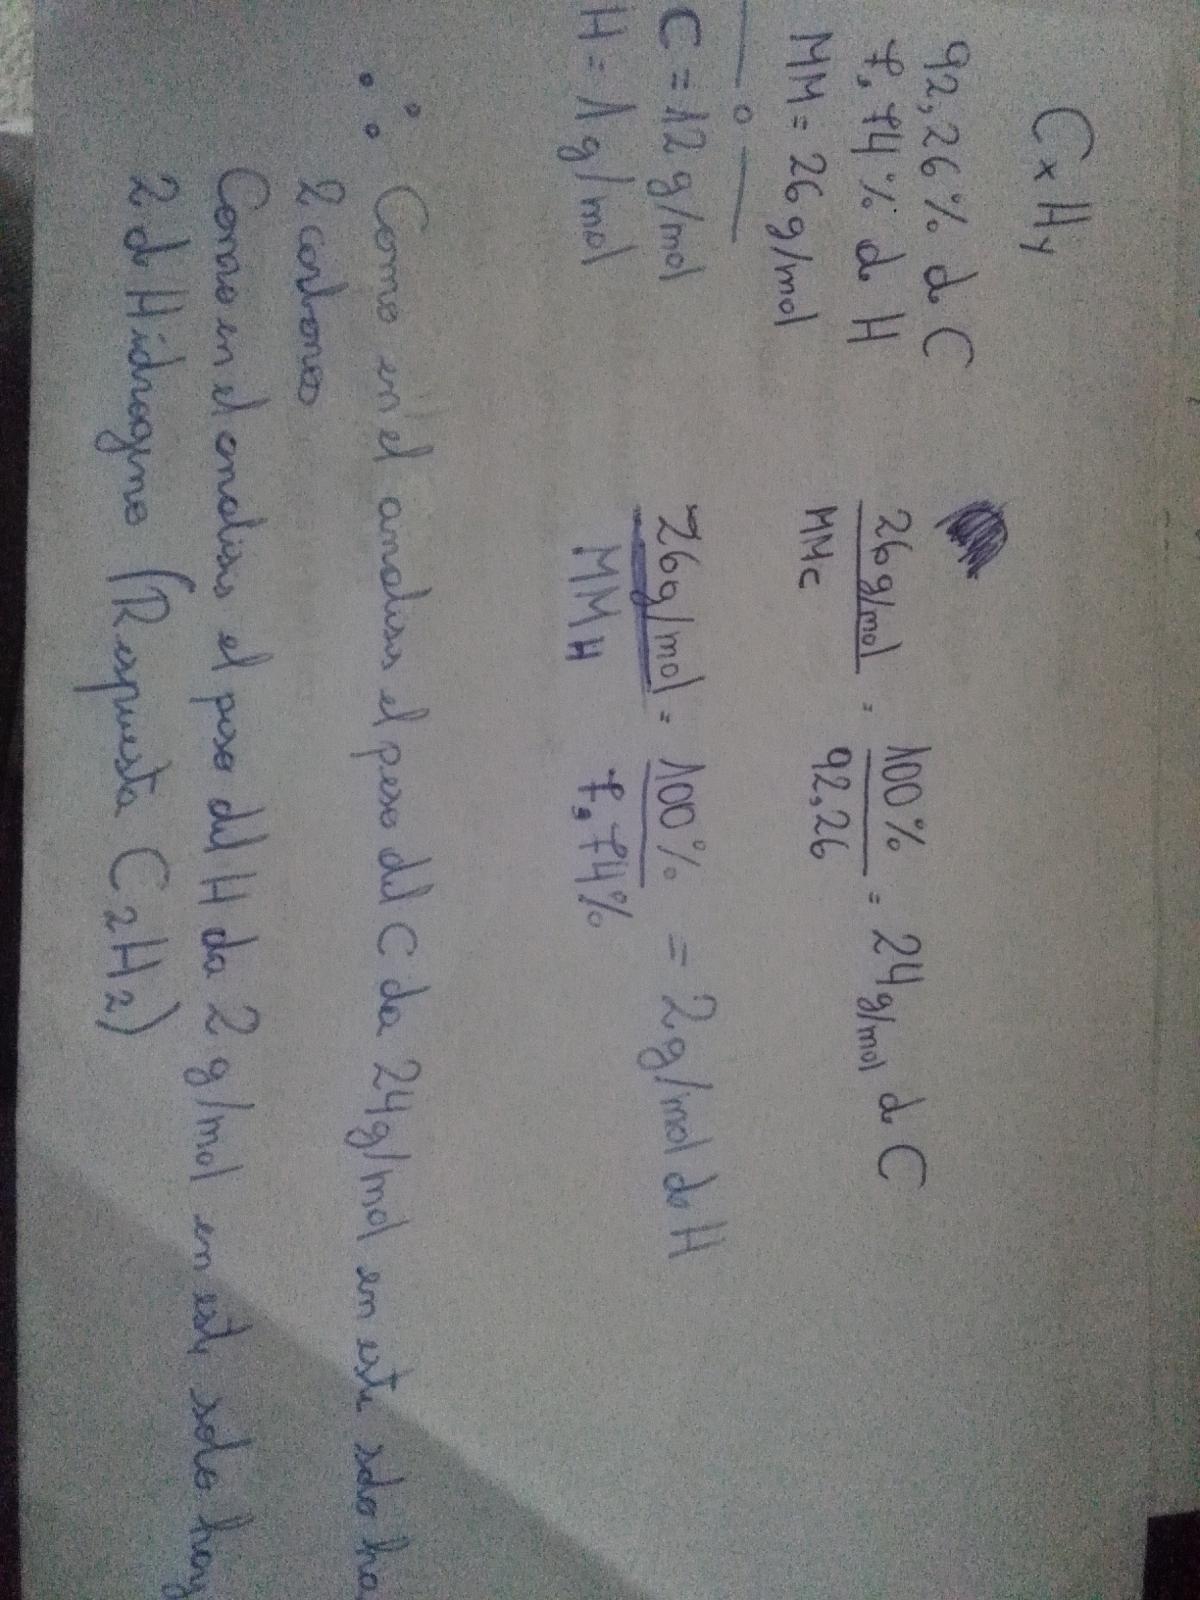 CxHy
92,26% de C
7,74% de H
MM = 26 g/mol
C = 12 g/mol
H = 1 g/mol
26 g/mol = 100% = 24 g/mol de C
MMc 92,26
26g/mol = 100% = 2g/mol de H
MMH 7,74%
∴ Como en el analisis el peso del C da 24g/mol en este solo ha
2 carbonos
Como en el analisis el peso del H da 2 g/mol en este solo hay
2 d Hidrogeno (Respuesta C2H2)